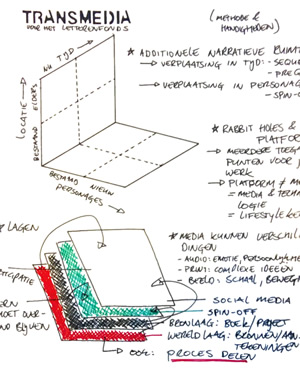 TRANSMEDIA
VOOR HET LETTERENFONDS
(METHODE &
HANDIGHEDEN)
TIJD
NU
LOCATIE
ELDERS
BESTAAND
BESTAAND NIEUW
PERSONAGES
★ ADDITIONELE NARRATIEVE RUIMTE
→ VERPLAATSING IN TIJD: - SEQU
- PREQ
→ VERPLAATSING IN PERSONAG
- SPIN-O
★ RABBIT HOLES &
PLATFOR
→ MEERDERE TOEG
PUNTEN VOOR J
WERK
→ PLATFORM ≠ M
= MEDIA & TECHN
LOGIE
= LIFESTYLE BE
LAGEN
★ MEDIA KUNNEN VERSCHIL
DINGEN
- AUDIO: EMOTIE, PERSOONLIJKHE
- PRINT: COMPLEXE IDEEËN
- BEELD: SCHAAL, BEWEGI
TEGRATIE
ERN
MOET OVER
ND BLIJVEN
SOCIAL MEDIA
SPIN-OFF
BRONLAAG: BOEK / PROJECT
WERELD LAAG: BRONNEN / AAN
TEKENINGEN
OOK: PROCES DELEN